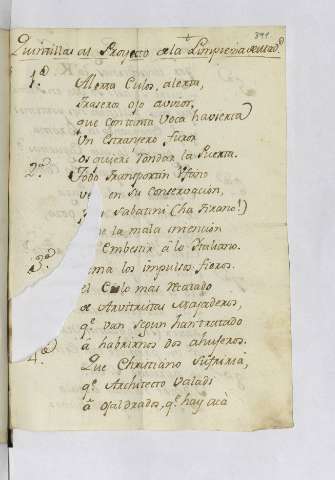 391
Quintillas al Proyecto de la Limpieza de Mad.d
1.a Alerta Culos, alerta,
traseros ojo avizor,
que con tinta Voca havierta
Un Estranjero furor
os quiere fondar la Puerta.
2.a Todo transportin Ufano
en su Conservazion,
Sabatini (ha tirano!)
la mala intencion
Embestir á lo Ytaliano.
3.a ma los impulsos fieros.
el Culo mas Matado
de Arvitristas Majaderos,
q.e van segun han tratado
á habrirnos dos ahujeros.
4.a Que Christiano Sufrirá,
q.e Architecto Valadi
á q.e hay acá